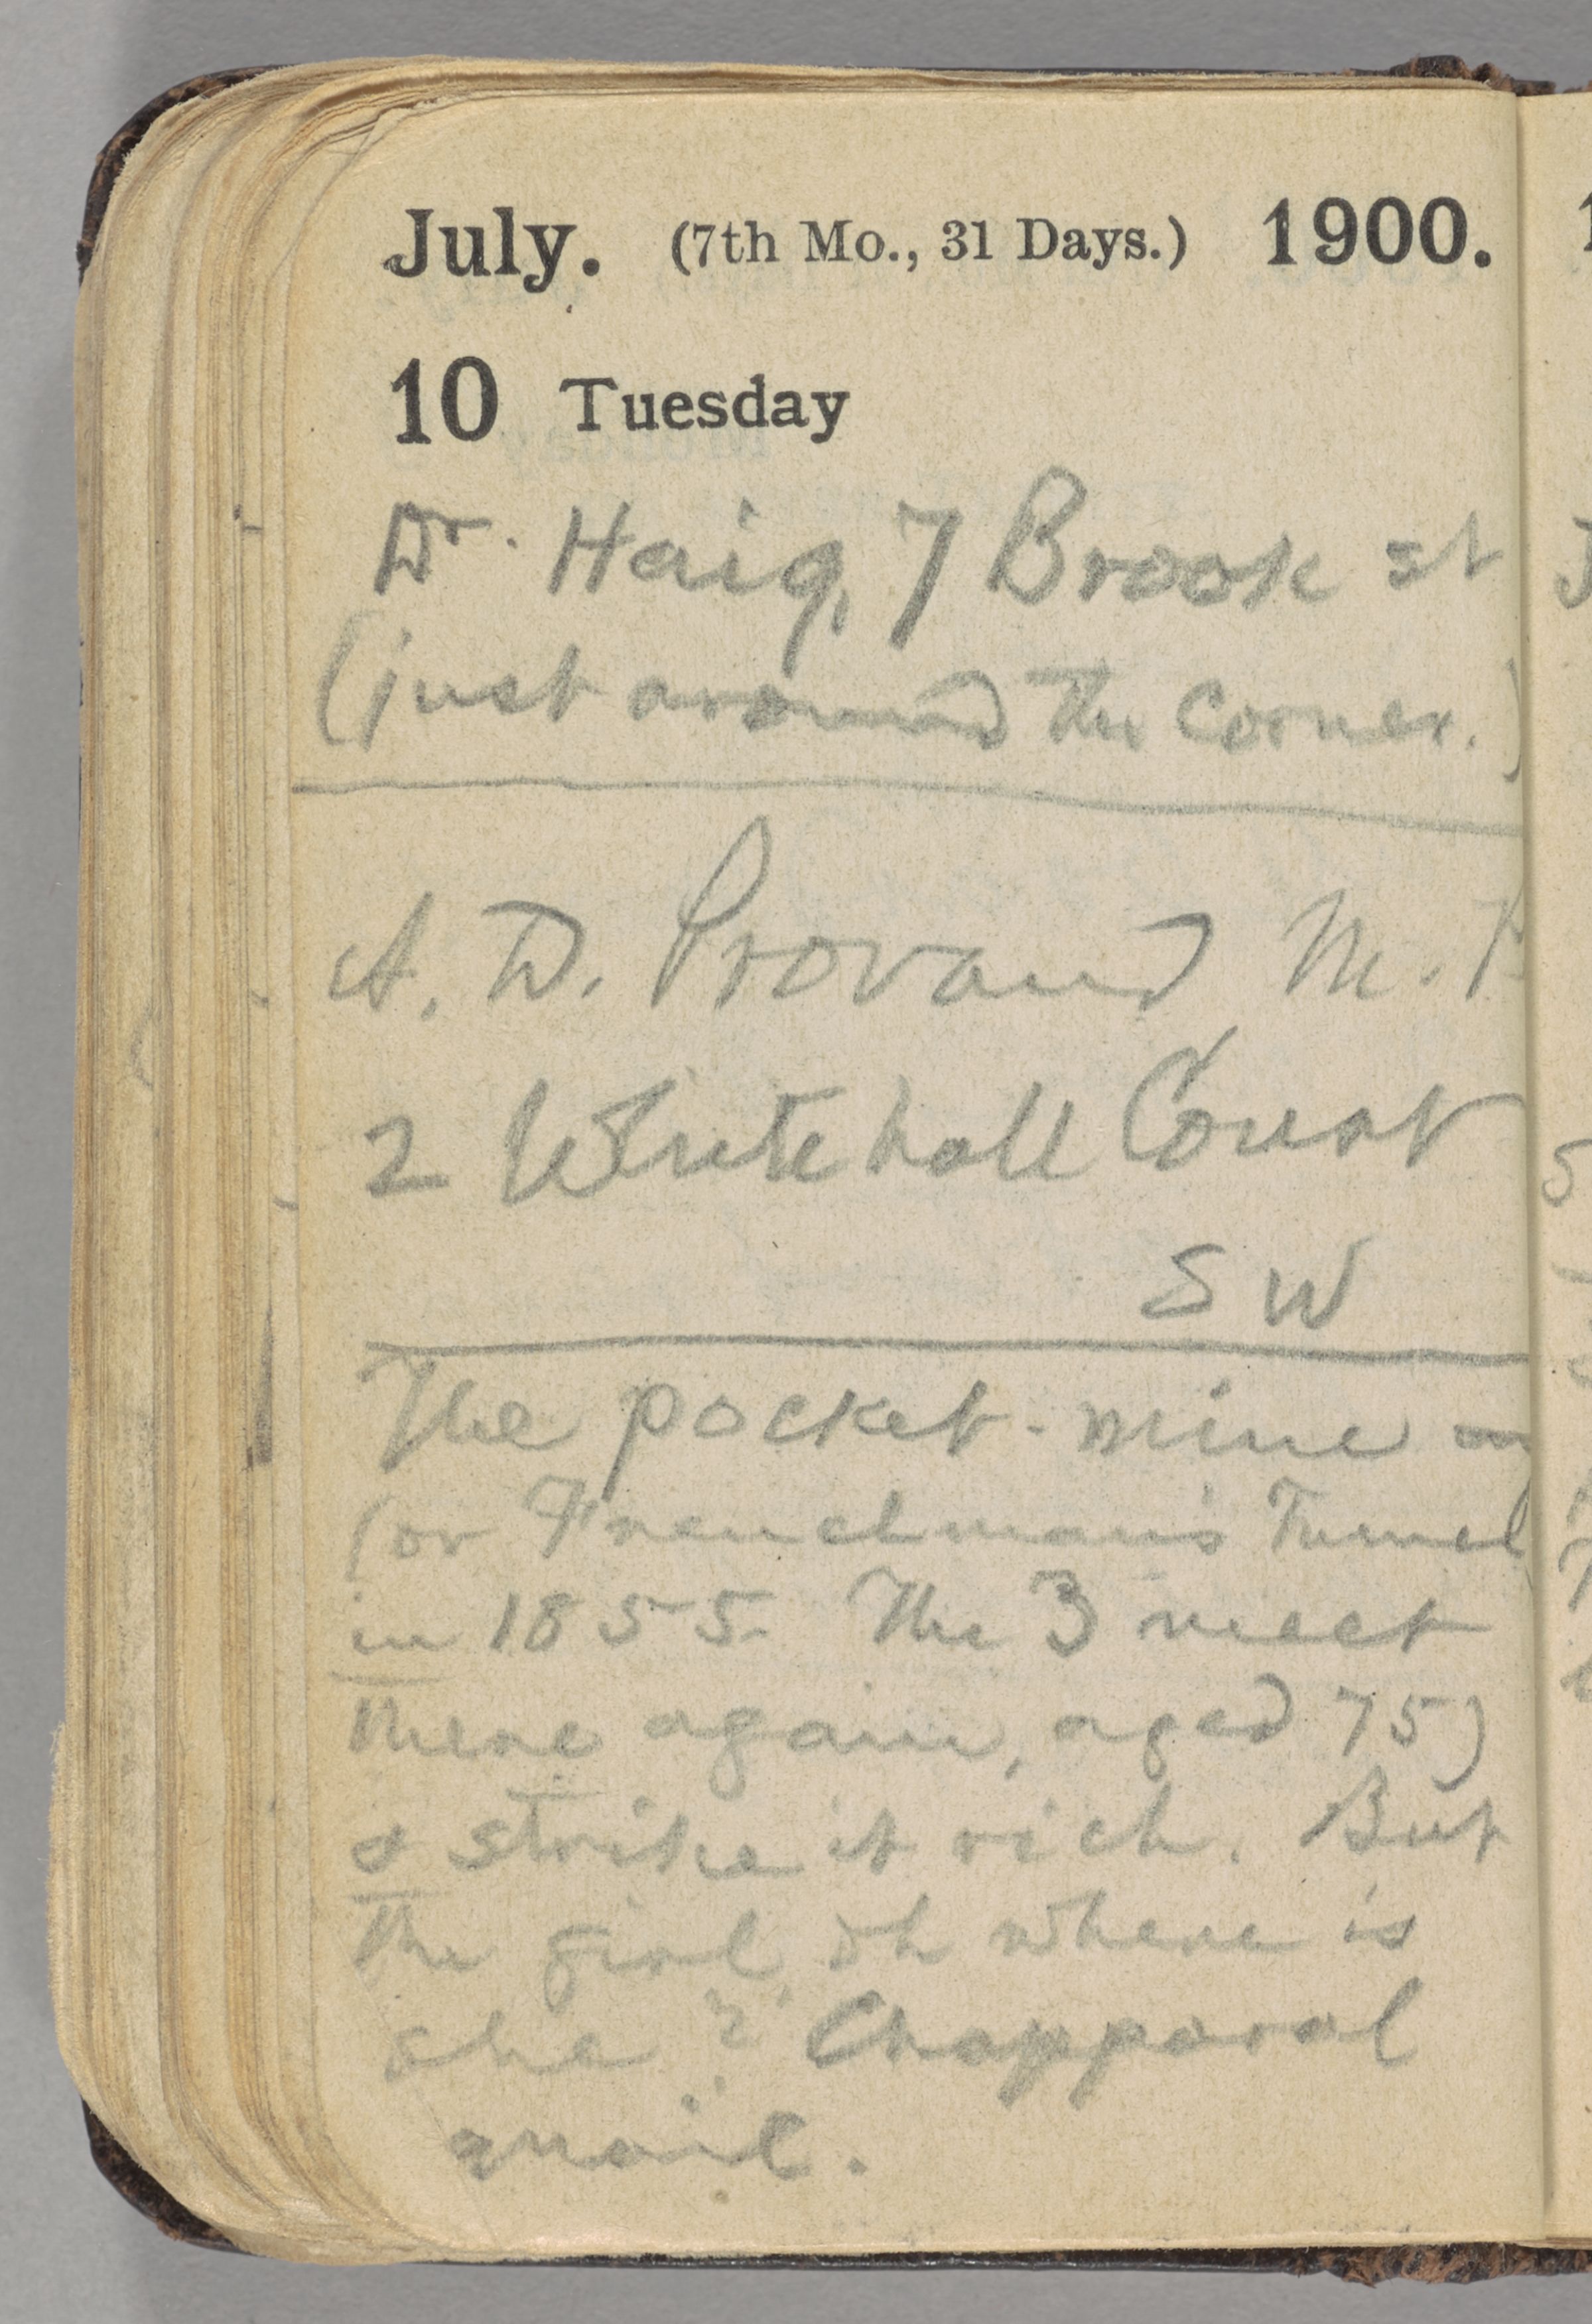 July. (7th Mo., 31 Days.) 1900.
10 Tuesday
Dr. Haig, 7 Brook st
(just around the corner.)
A. D. Provand M. P
2 Whitehall Court
S W
The pocket-mine
(or Frenchman's Tunnel
in 1855. The 3 meet
there again, aged 75)
& strike it rich. But
the girl, oh where is
she? Chapparal
quail.